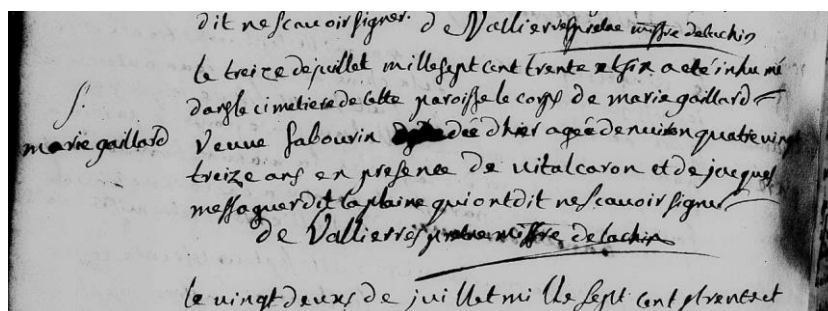 dit ne scavoir signer. de Vallierres pretre missre de lachin
le treize de juillet mille sept cent trente et six a eté inhumé
dans le cimetiere de cette paroisse le corps de marie gaillard
S.
marie gaillard
veuve sabourin decedée d'hier agée denviron quatre vingt
treize ans en presence de vital caron et de jacques
messaguer dit laplaine qui ont dit ne scavoir signer
de Vallierres pretre missre de lachin
le vingt deux de juillet mille sept cent trente et